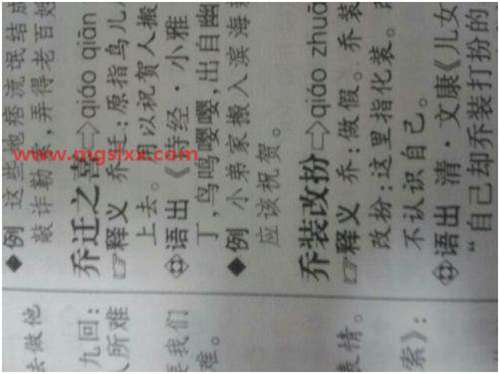 去做他
九回:
人所难
要我们
难。
表情。
索》:
◆例 这些地痞流氓结成
敲诈勒索,弄得老百姓
乔迁之喜 ⇨qiáo qiān
☞释义 乔迁:原指鸟儿
上去。用以祝贺人搬
语出《诗经·小雅
丁,鸟鸣嘤嘤,出自幽
◆例 小弟家搬入滨海
应该祝贺。
乔装改扮⇨qiáo zhuā
☞释义 乔:做假。乔装
改扮:这里指化装。
不认识自己。
语出 清·文康《儿女
“自己却乔装打扮的
www.mgslxx.com